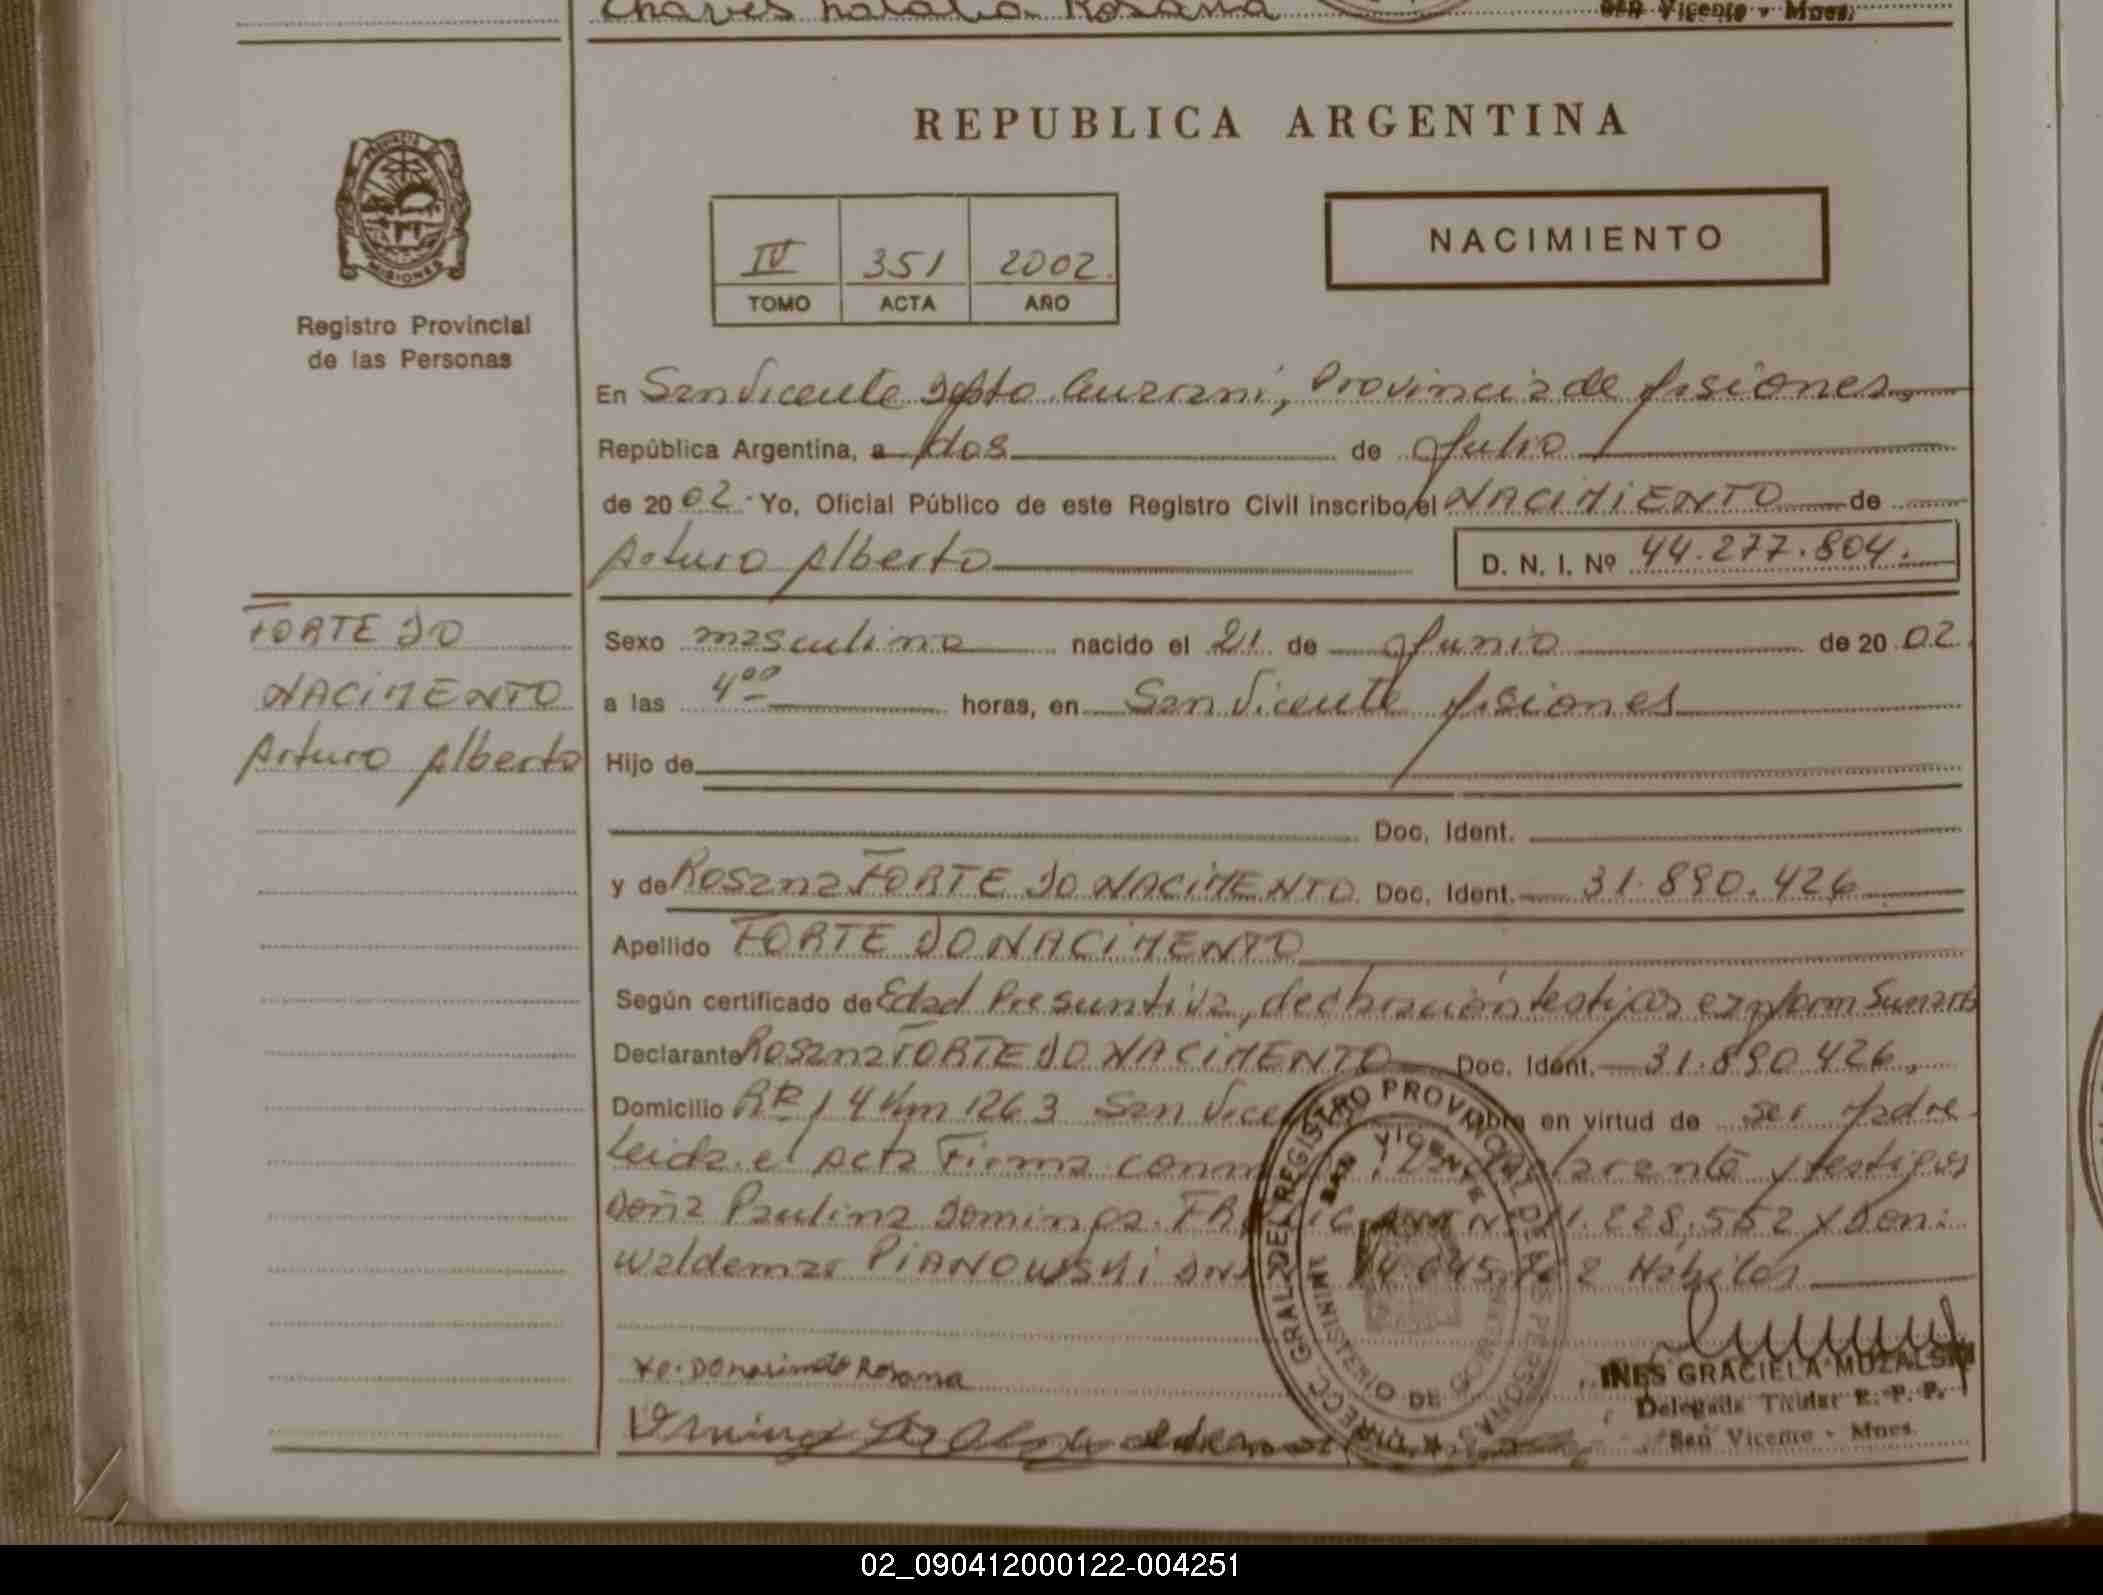 Chaves Natalia Rosana
San Vicente - Mnes.
REPUBLICA ARGENTINA
PROVINCIA DE
MISIONES
Registro Provincial
de las Personas
IV 351 2002.
TOMO ACTA AÑO
NACIMIENTO
En San Vicente Dpto Guaraní, Provincia de Misiones
República Argentina, a dos de Julio
de 2002 - Yo, Oficial Público de este Registro Civil inscribo el NACIMIENTO de
Arturo Alberto
D. N. I. Nº 44.277.804.
FORTE DO
NACIMENTO
Arturo Alberto
Sexo masculino nacido el 21 de Junio de 2002.
a las 4⁰⁰ horas, en San Vicente Misiones
Hijo de
Doc. Ident.
y de Rosana FORTE DO NACIMENTO. Doc. Ident. 31.890.426
Apellido FORTE DO NACIMENTO
Según certificado de Edad Presuntiva, declaración testigos e inform Sumaria
Declarante Rosana FORTE DO NACIMENTO Doc. Ident. 31.890.426.
Domicilio RR 14 Km 1263 San Vicente Obra en virtud de ser Madre
Leida el Acta Firma declarante y testigos
Doña Paulina Dominga 11.228.552 y Don:
Waldemar PIANOWSKI DNI Hábiles
DIRECC. GRAL. DEL REGISTRO PROVINCIAL DE LAS PERSONAS
SAN VICENTE
Yo. DO nacimento Rosana
INES GRACIELA MUZALSKI
Delegada Titular R. P. P.
San Vicente - Mnes.
02_090412000122-004251